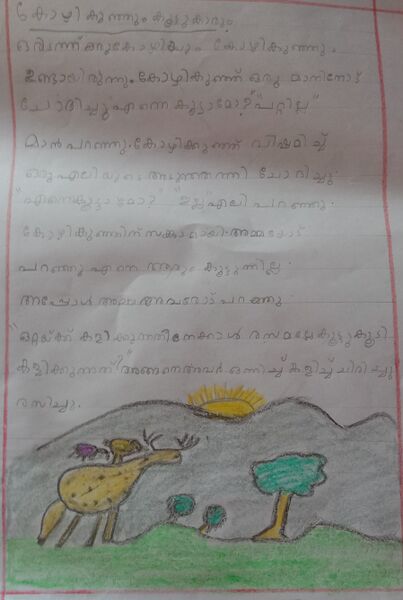 കോഴികുഞ്ഞും കൂട്ടുകാരും
ഒരിടത്ത് ഒരു കോഴിയും കോഴികുഞ്ഞും
ഉണ്ടായിരുന്നു. കോഴികുഞ്ഞ് ഒരു മാനിനോട്
ചോദിച്ചു എന്നെ കൂട്ടാമോ? "പറ്റില്ല"
മാൻ പറഞ്ഞു. കോഴിക്കുഞ്ഞ് വിഷമിച്ച്
ഒരു എലിയുടെ അടുത്തെത്തി ചോദിച്ചു
"എന്നെകൂട്ടാമോ?" "ഇല്ല" എലി പറഞ്ഞു.
കോഴികുഞ്ഞിന് സങ്കടമായി. അമ്മയോട്
പറഞ്ഞു എന്നെ ആരും കൂട്ടുന്നില്ല.
അപ്പോൾ അമ്മ അവരോട് പറഞ്ഞു.
"ഒറ്റയ്ക്ക് കളിക്കുന്നതിനേക്കാൾ രസമല്ലേ കൂട്ടുകൂടി
കളിക്കുന്നത്" അങ്ങനെ അവർ ഒന്നിച്ച് കളിച്ച് ചിരിച്ചു
രസിച്ചു.